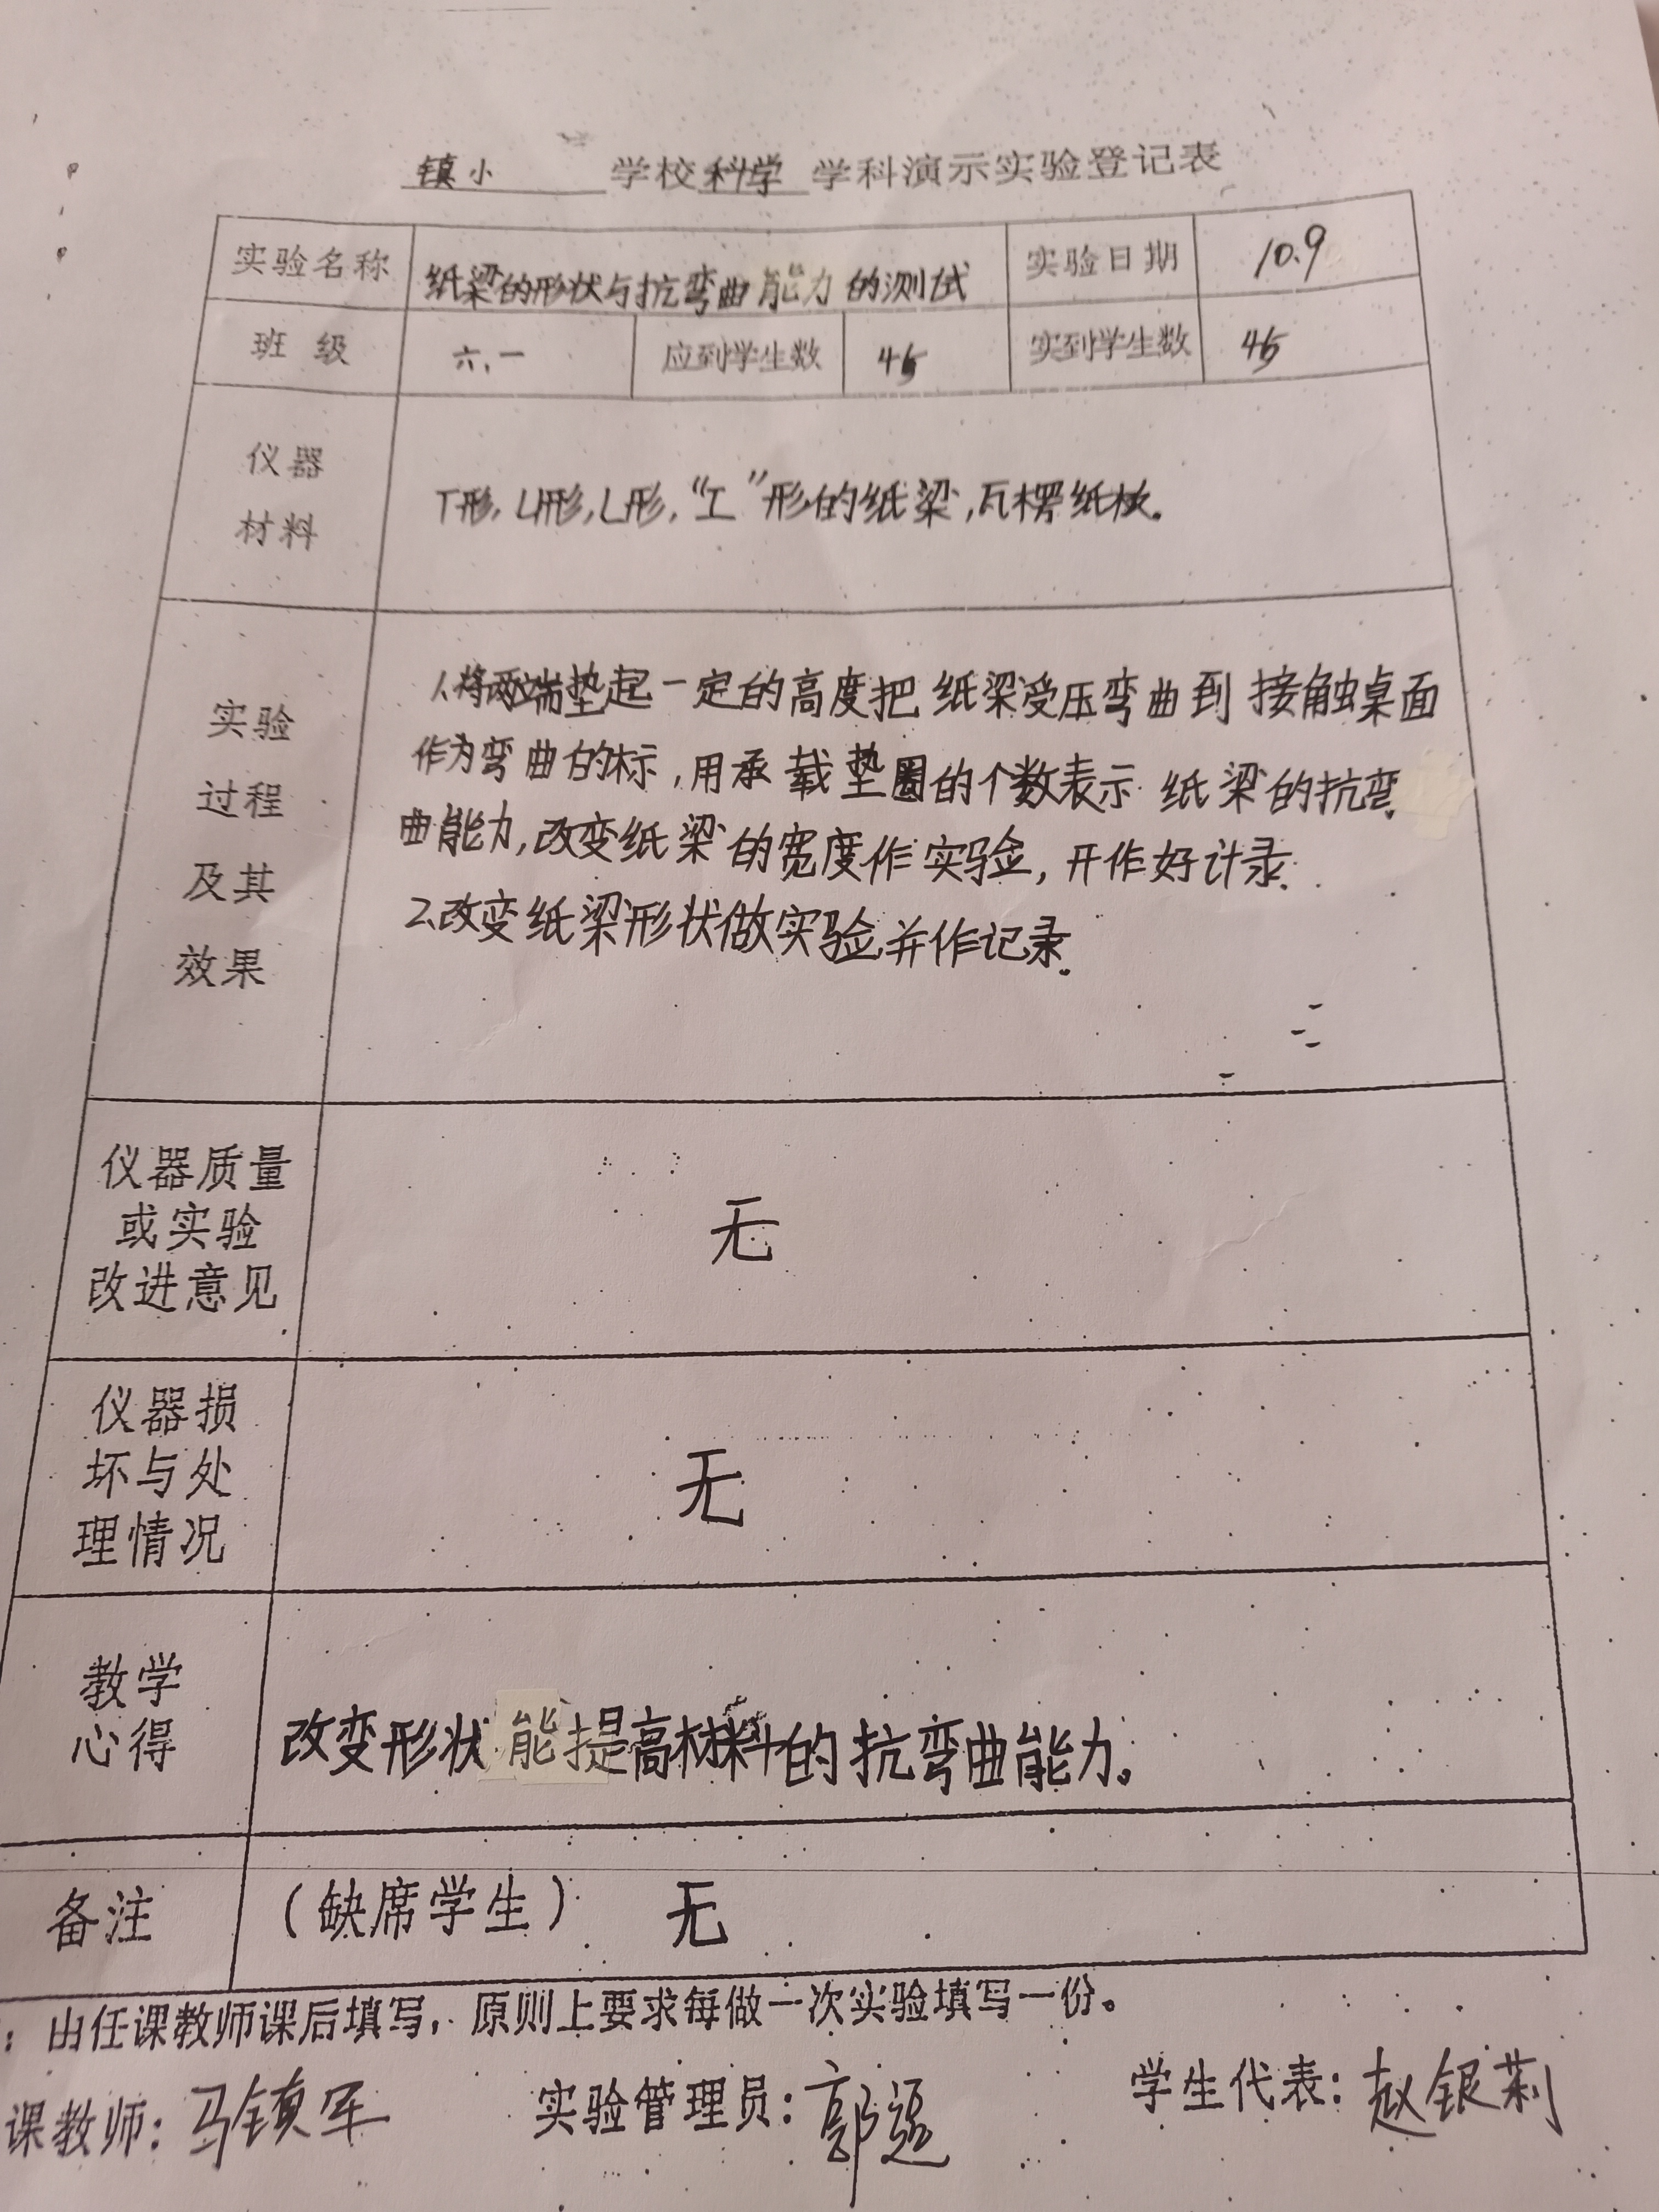 镇小 学校 科学 学科演示实验登记表
实验名称 纸梁的形状与抗弯曲能力的测试 实验日期 10.9
班 级 六.一 应到学生数 45 实到学生数 45
仪器
材料
T形, U形, L形, “工”形的纸梁, 瓦楞纸板。
实验
过程
及其
效果
1.将两端垫起一定的高度把纸梁受压弯曲到接触桌面
作为弯曲的标, 用承载垫圈的个数表示纸梁的抗弯
曲能力, 改变纸梁的宽度作实验, 开作好计录.
2.改变纸梁形状做实验并作记录.
仪器质量
或实验
改进意见
无
仪器损
坏与处
理情况
无
教学
心得
改变形状能提高材料的抗弯曲能力。
备注 (缺席学生) 无
: 由任课教师课后填写, 原则上要求每做一次实验填写一份。
课教师: 马镇军 实验管理员: 郭 学生代表: 赵银莉